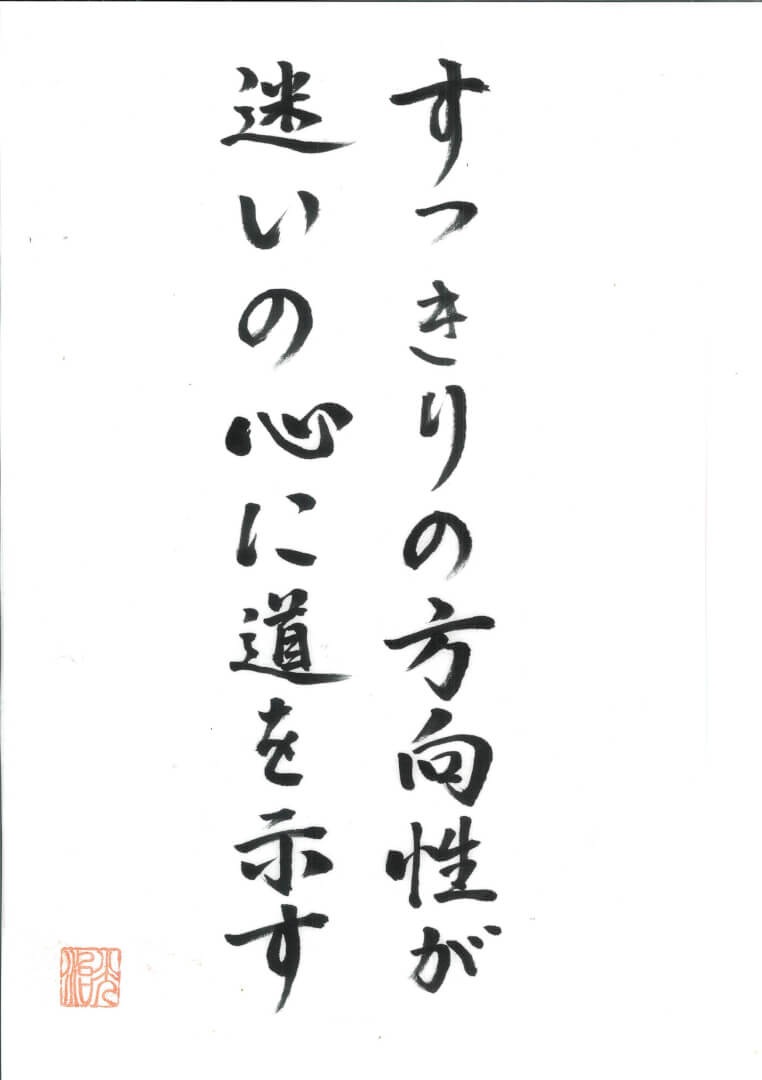 すっきりの方向性が
迷いの心に道を示す